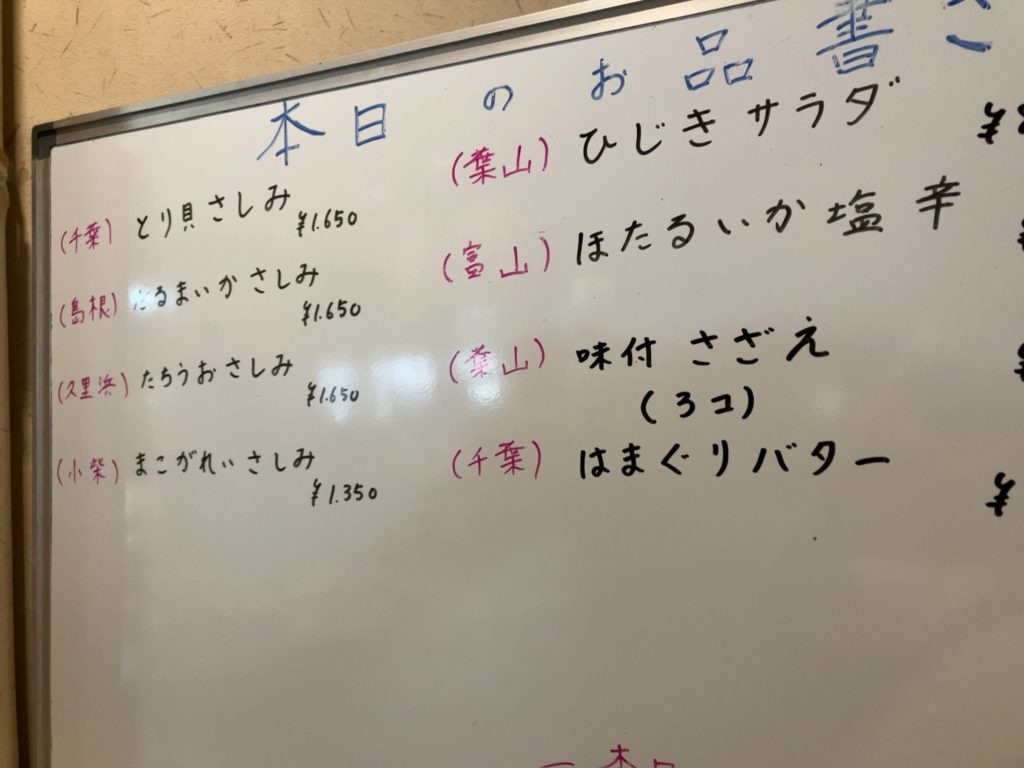 本日のお品書き
(千葉) とり貝さしみ
¥1.650
(島根) だるまいかさしみ
¥1.650
(久里浜) たちうおさしみ
¥1.650
(小柴) まこがれいさしみ
¥1.350
(葉山) ひじきサラダ
¥
(富山) ほたるいか塩辛
(葉山) 味付さざえ
(3コ)
(千葉) はまぐりバター
¥